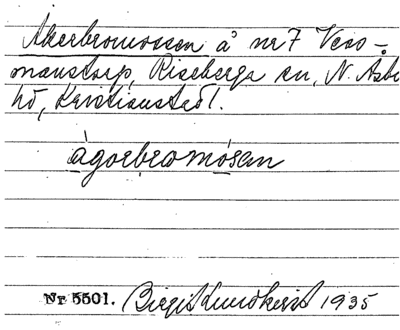 Åkerbromossen å nr 7 Vess-
manstorp, Riseberga sn, N. Åsbo
hd, Kristianstad l.
ågorbromósen
Nr 5501. Birgit Lundkvist 1935